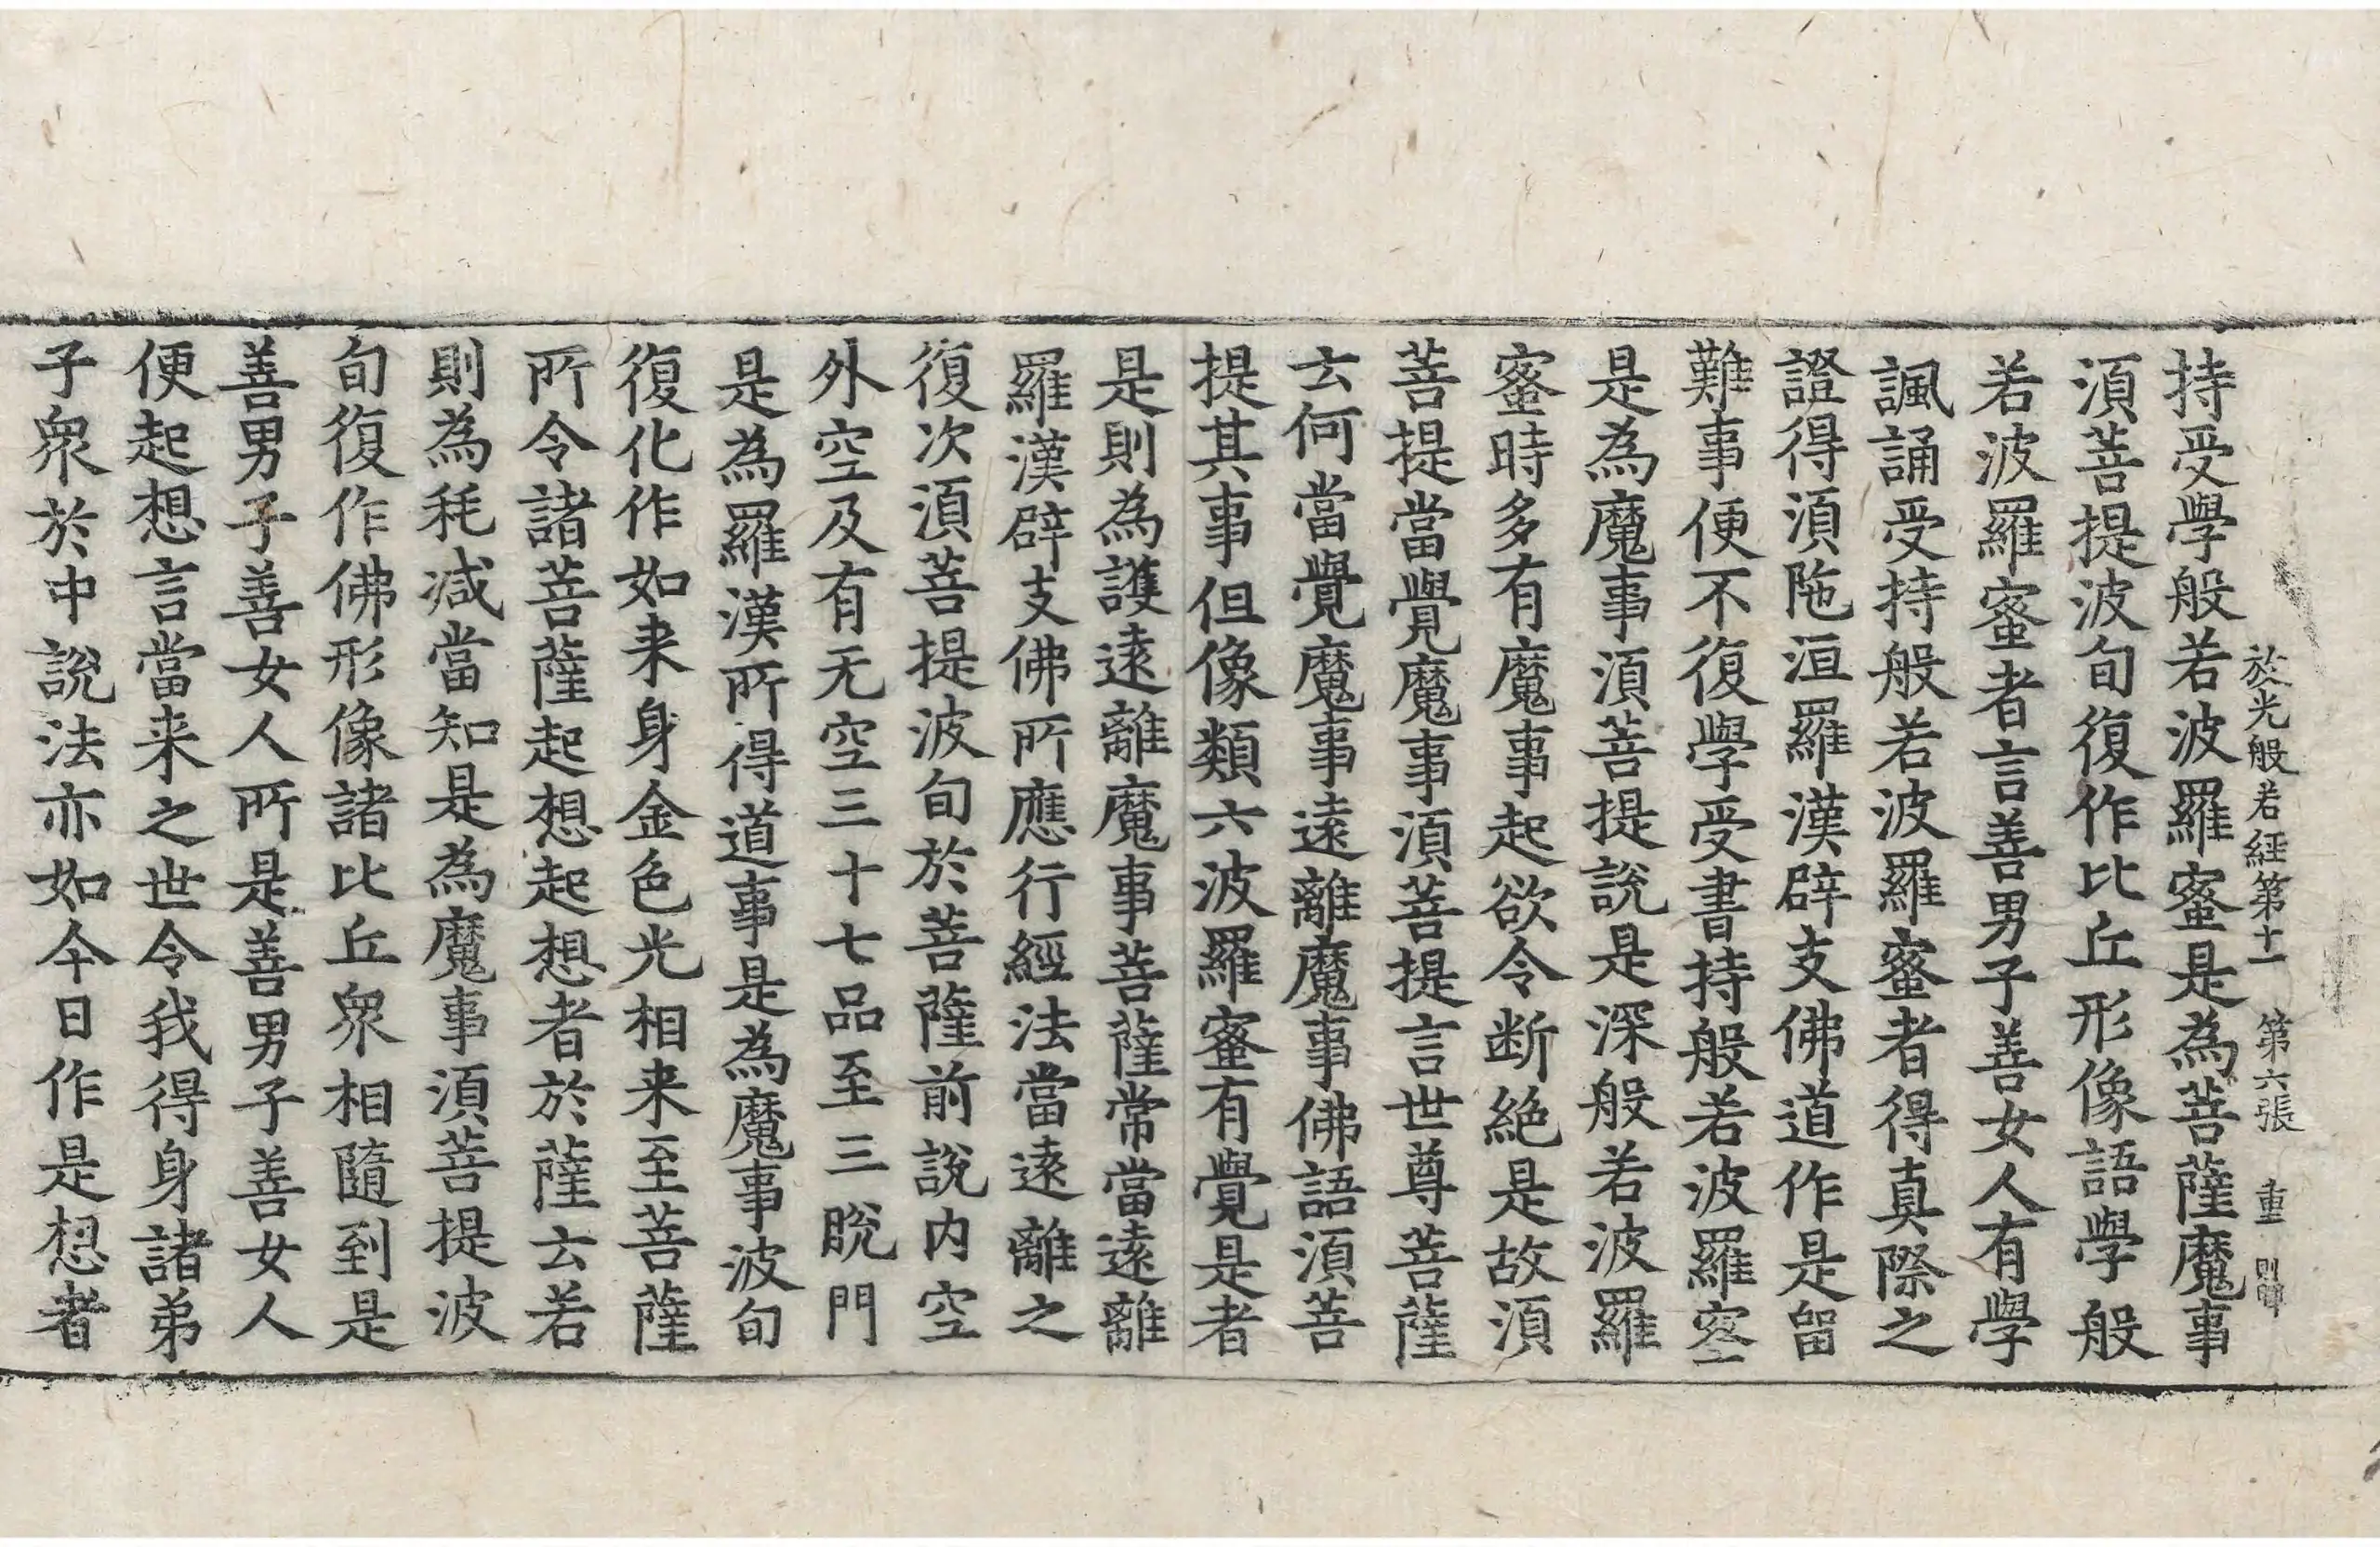 於光般若經第十一 第六張 重
持受學般若波羅蜜是為菩薩魔事
湏菩提波旬復作比丘形像語學般
若波羅蜜者言善男子善女人有學
諷誦受持般若波羅蜜者得真際之
證得湏陁洹羅漢辟支佛道作是留
難事便不復學受書持般若波羅蜜
是為魔事湏菩提說是深般若波羅
蜜時多有魔事起欲令断絶是故湏
菩提當覺魔事湏菩提言世尊菩薩
云何當覺魔事遠離魔事佛語湏菩
提其事但像類六波羅蜜有覺是者
是則為護遠離魔事菩薩常當遠離
羅漢辟支佛所應行經法當遠離之
復次湏菩提波旬於菩薩前說内空
外空及有无空三十七品至三脫門
是為羅漢所得道事是為魔事波旬
復化作如来身金色光相来至菩薩
所令諸菩薩起想起想者於薩云若
則為秏減當知是為魔事湏菩提波
旬復作佛形像諸比丘眾相隨到是
善男子善女人所是善男子善女人
便起想言當来之世令我得身諸弟
子眾於中說法亦如今日作是想者